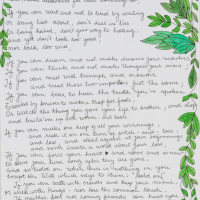 If you can wait and not be tired by waiting
Or being lied about, don't deal in lies
Or being hated, don't give way to hating
And yet don't look too good
nor talk too wise,
If you can dream and not make dreams your master
If you can think and not make thoughts your aim
If you can meet with triumph and disaster
And treat those two impostors just the same
If you can bear to hear the truth you've spoken
Twisted by knaves to make a trap for fools,
Or watch the things you gave your life to broken
and build 'em up with worn out tools
If you can make one heap of all your winnings
and risk it on one turn of pitch and toss
and lose, and start again at your beginnings
and never breathe a word about your loss,
If you can force your heart and nerve and sinew
to serve your turn long after they are gone,
And so hold on when there is nothing in you
Except the will which says to them "hold on"
If you can talk with crowds and keep your virtue
or walk with kings nor lose the common touch,
If neither foes nor loving friends can hurt you